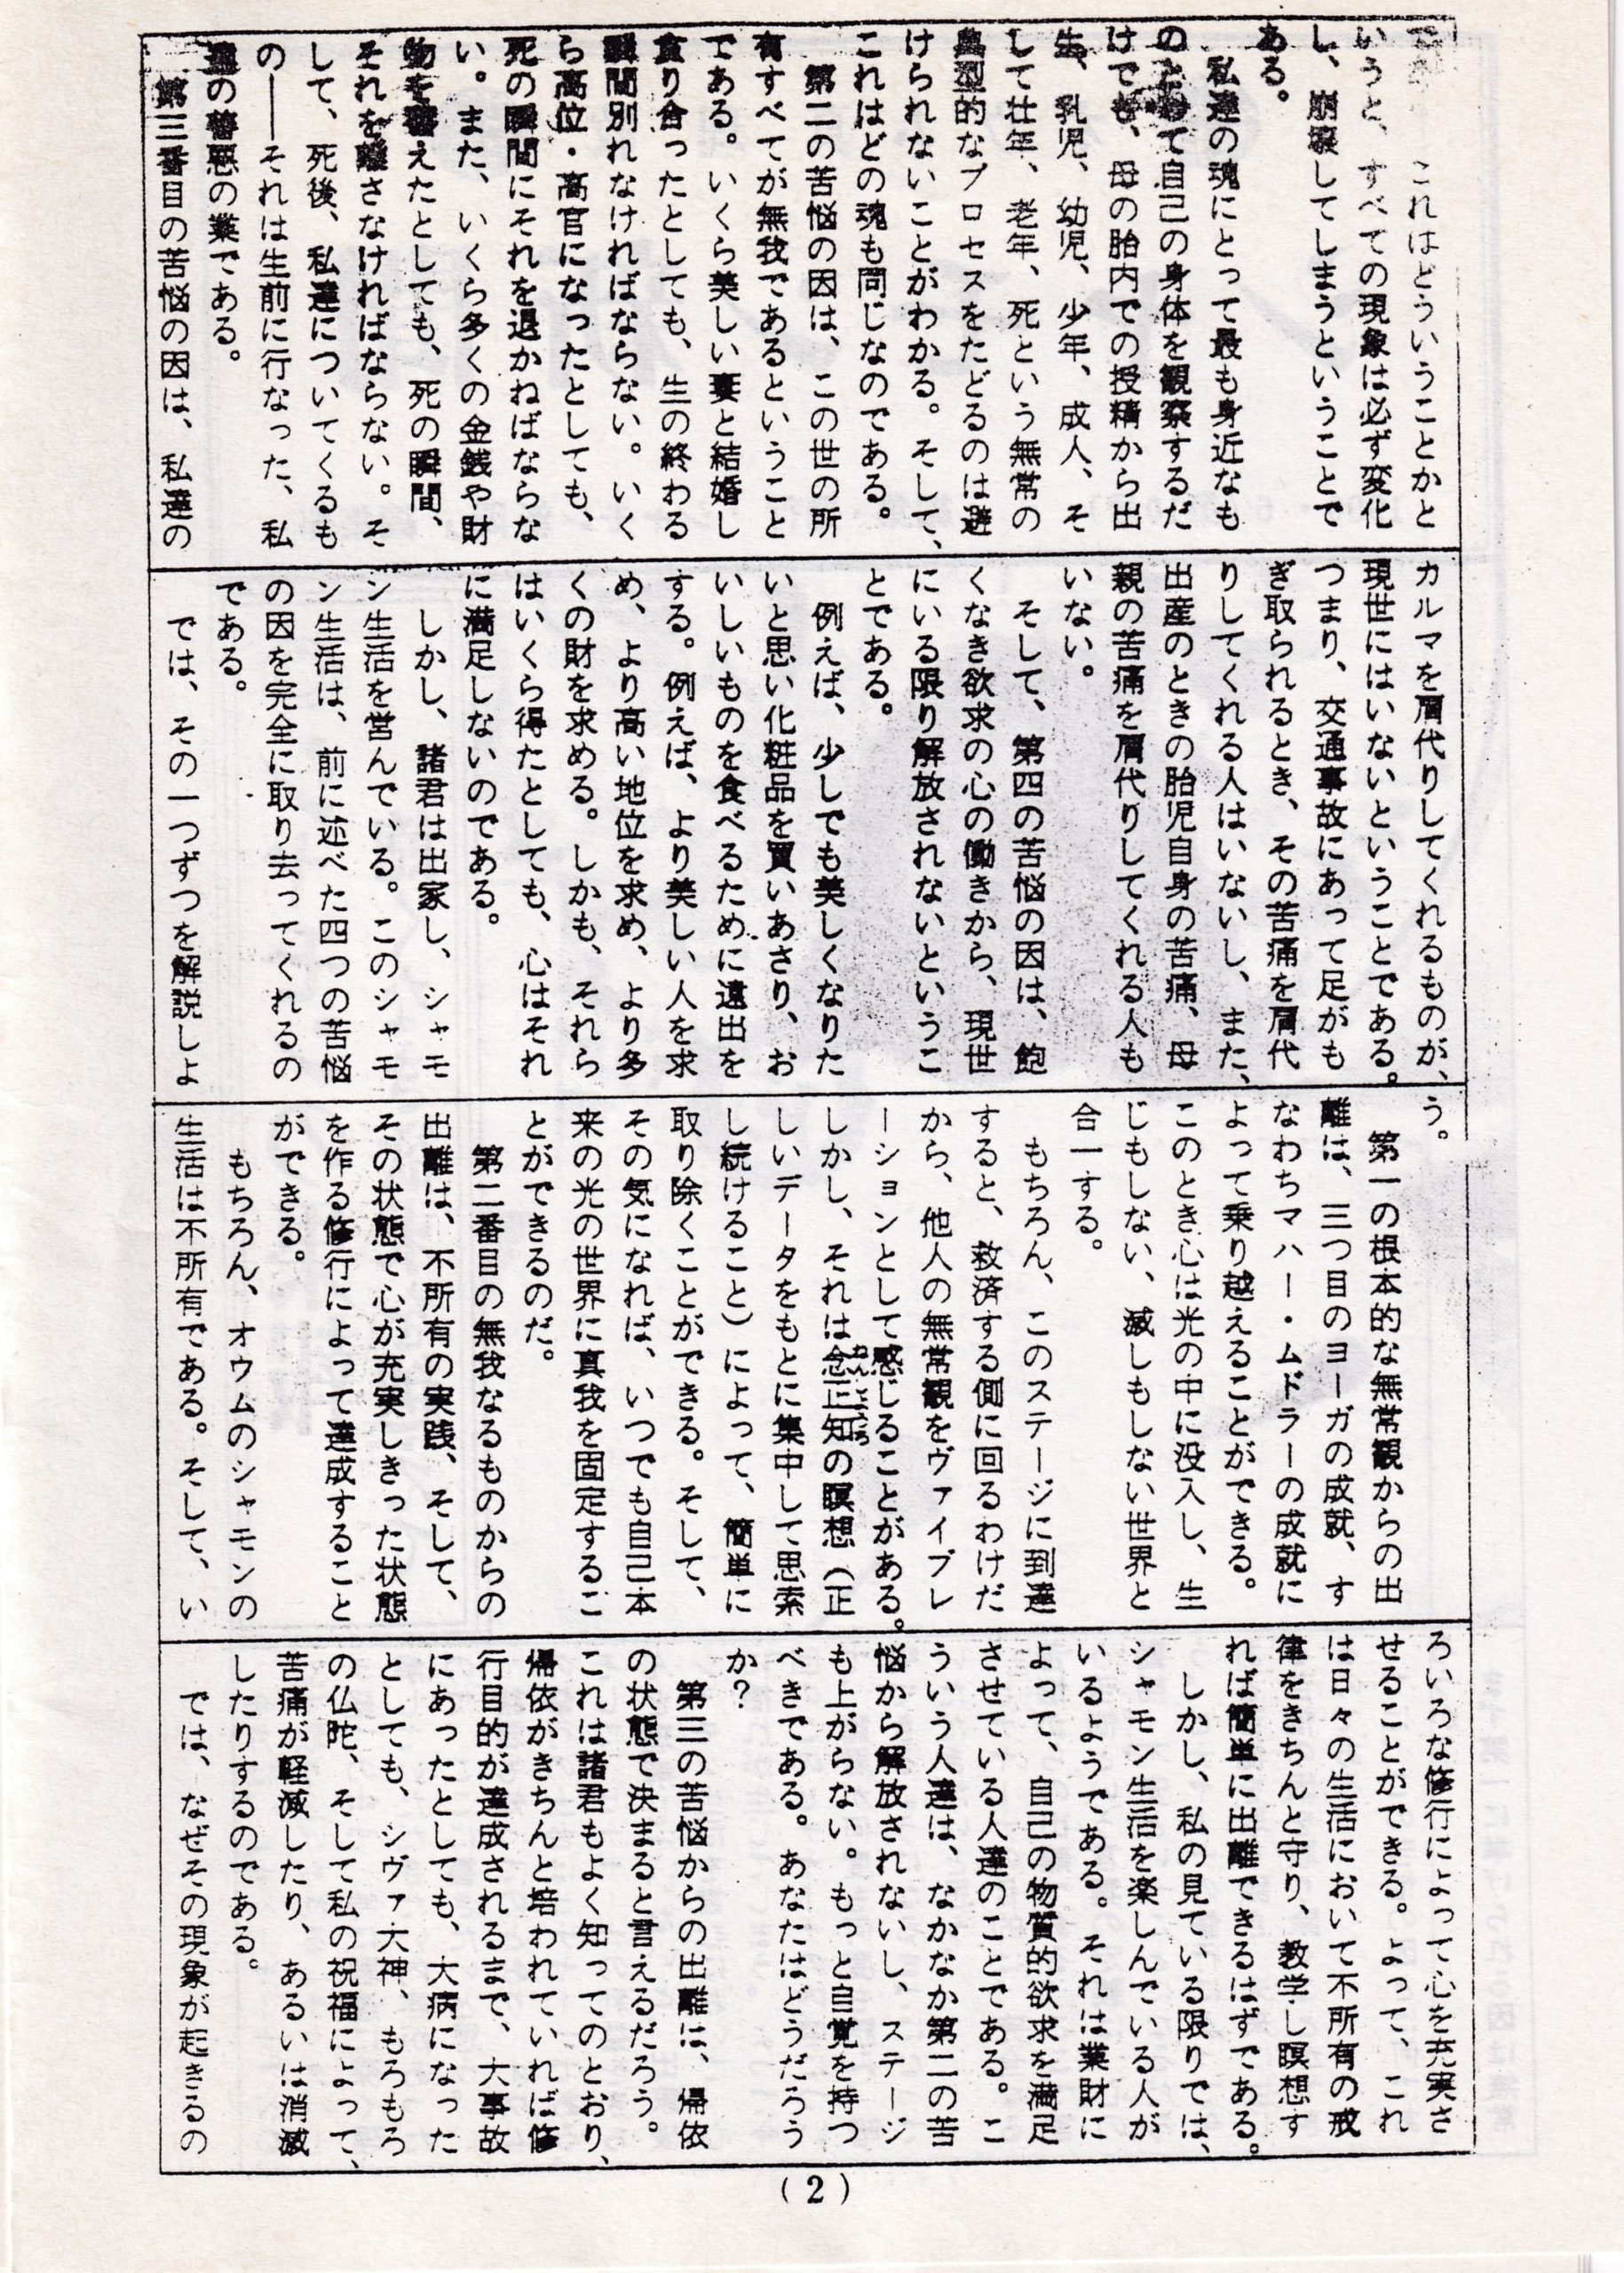 これはどういうことかと
いうと、すべての現象は必ず変化
し、崩壊してしまうということで
ある。
私達の魂にとって最も身近なも
のとして自己の身体を観察するだ
けでも、母の胎内での授精から出
生、乳児、幼児、少年、成人、そ
して壮年、老年、死という無常の
典型的なプロセスをたどるのは避
けられないことがわかる。そして、
これはどの魂も同じなのである。
第二の苦悩の因は、この世の所
有すべてが無我であるということ
である。いくら美しい妻と結婚し
貪り合ったとしても、生の終わる
瞬間別れなければならない。いく
ら高位・高官になったとしても、
死の瞬間にそれを退かねばならな
い。また、いくら多くの金銭や財
物を蓄えたとしても、死の瞬間、
それを離さなければならない。そ
して、死後、私達についてくるも
の──それは生前に行なった、私
達の善悪の業である。
第三番目の苦悩の因は、私達の
カルマを肩代りしてくれるものが、
現世にはいないということである。
つまり、交通事故にあって足がも
ぎ取られるとき、その苦痛を肩代
りしてくれる人はいないし、また、
出産のときの胎児自身の苦痛、母
親の苦痛を肩代りしてくれる人も
いない。
そして、第四の苦悩の因は、飽
くなき欲求の心の働きから、現世
にいる限り解放されないというこ
とである。
例えば、少しでも美しくなりた
いと思い化粧品を買いあさり、お
いしいものを食べるために遠出を
する。例えば、より美しい人を求
め、より高い地位を求め、より多
くの財を求める。しかも、それら
はいくら得たとしても、心はそれ
に満足しないのである。
しかし、諸君は出家し、シャモ
ン生活を営んでいる。このシャモ
ン生活は、前に述べた四つの苦悩
の因を完全に取り去ってくれるの
である。
では、その一つずつを解説しよ
う。
第一の根本的な無常観からの出
離は、三つ目のヨーガの成就、す
なわちマハー・ムドラーの成就に
よって乗り越えることができる。
このとき心は光の中に没入し、生
じもしない、滅しもしない世界と
合一する。
もちろん、このステージに到達
すると、救済する側に回るわけだ
から、他人の無常観をヴァイブレ
ーションとして感じることがある。
しかし、それは念正知の瞑想（正
しいデータをもとに集中して思索
し続けること）によって、簡単に
取り除くことができる。そして、
その気になれば、いつでも自己本
来の光の世界に真我を固定するこ
とができるのだ。
第二番目の無我なるものからの
出離は、不所有の実践、そして、
その状態で心が充実しきった状態
を作る修行によって達成すること
ができる。
もちろん、オウムのシャモンの
生活は不所有である。そして、い
ろいろな修行によって心を充実さ
せることができる。よって、これ
は日々の生活において不所有の戒
律をきちんと守り、教学し瞑想す
れば簡単に出離できるはずである。
しかし、私の見ている限りでは、
シャモン生活を楽しんでいる人が
いるようである。それは業財に
よって、自己の物質的欲求を満足
させている人達のことである。こ
ういう人達は、なかなか第二の苦
悩から解放されないし、ステージ
も上がらない。もっと自覚を持つ
べきである。あなたはどうだろう
か？
第三の苦悩からの出離は、帰依
の状態で決まると言えるだろう。
これは諸君もよく知ってのとおり、
帰依がきちんと培われていれば修
行目的が達成されるまで、大事故
にあったとしても、大病になった
としても、シヴァ大神、もろもろ
の仏陀、そして私の祝福によって、
苦痛が軽減したり、あるいは消滅
したりするのである。
では、なぜその現象が起きるの
（2）